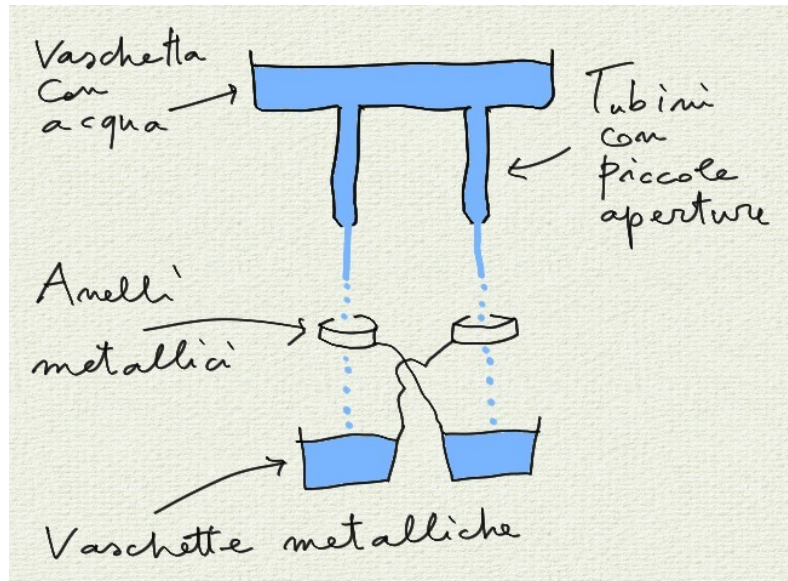 Vaschetta
con
acqua
Tubini
con
piccole
aperture
Anelli
metallici
Vaschette metalliche